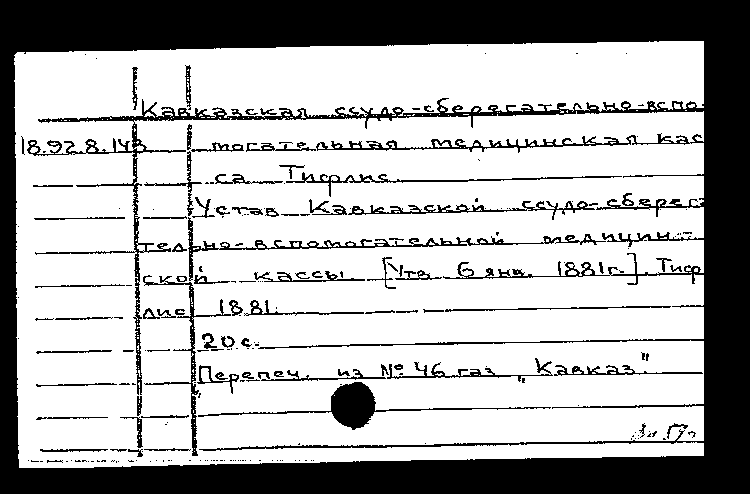 Кавказская ссудо-сберегательно-вспо-
18.92.8.143 могательная медицинская кас
са Тифлис.
Устав Кавказской ссудо-сберега
тельно-вспомогательной медицин-
ской кассы. [Утв. 6 янв. 1881г.]. Тиф
лис 1881.
20 с.
Перепеч. из № 46 газ „Кавказ"